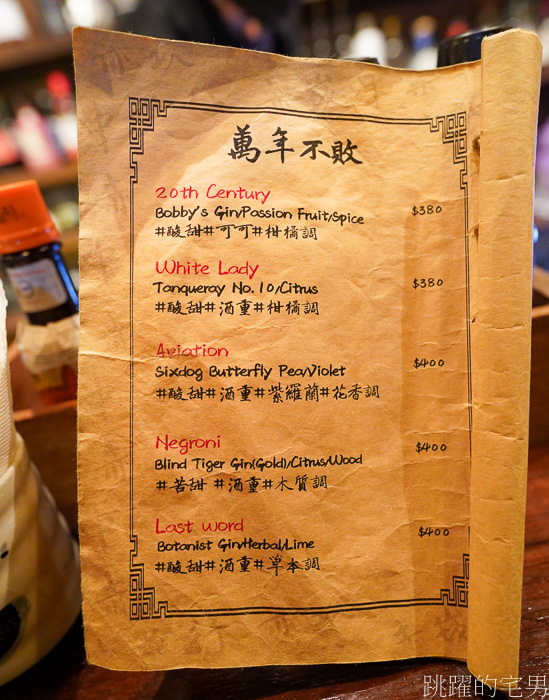 萬年不敗
20th Century
Bobby's Gin/Passion Fruit/Spice $380
#酸甜#可可#柑橘調
White Lady
Tanqueray No. 10/Citrus $380
#酸甜#酒重#柑橘調
Aviation
Sixdog Butterfly Pea/Violet $400
#酸甜#酒重#紫羅蘭#花香調
Negroni
Blind Tiger Gin(Gold)/Citrus/Wood $400
#苦甜 #酒重#木質調
Last word
Botanist Gin/Herbal/Lime $400
#酸甜#酒重#草本調
跳躍的宅男